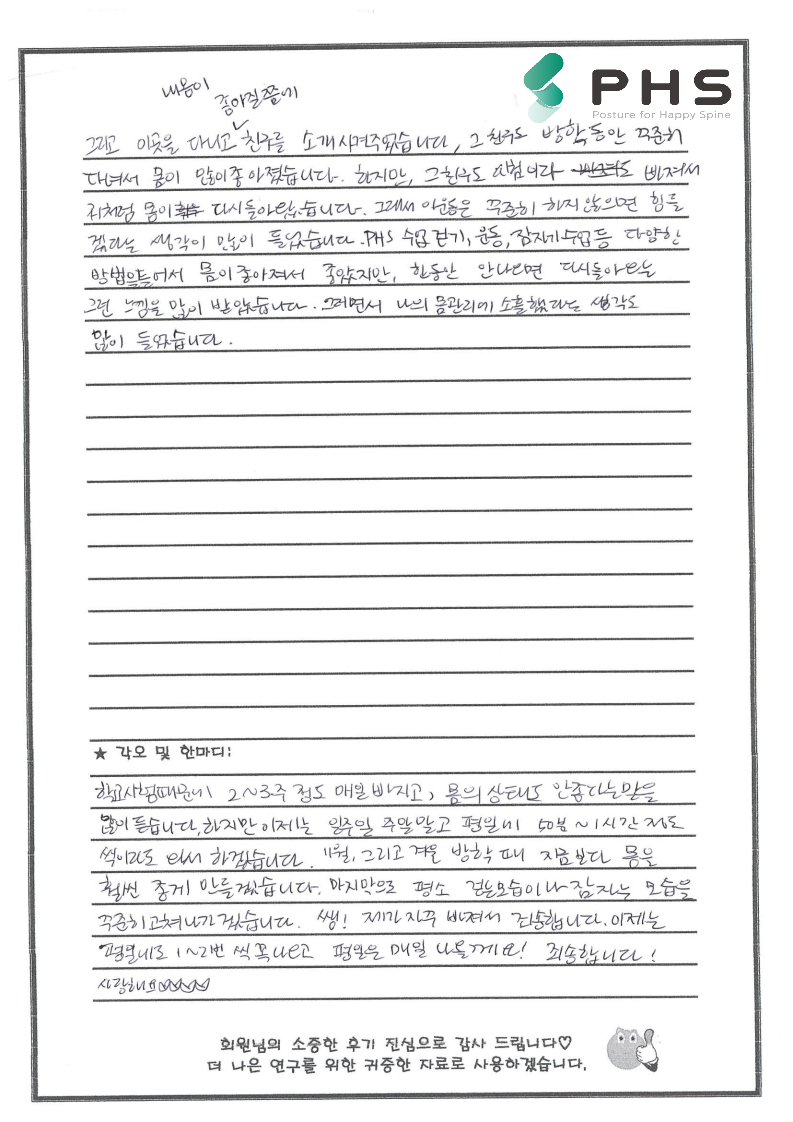 PHS
Posture for Happy Spine
내몸이 좋아질쯤에
그리고 이곳을 다니고 친구를 소개시켜주었습니다, 그 친구도 방학동안 꾸준히
다녀서 몸이 많이 좋아졌습니다. 하지만, 그 친구도 시험니다 빠져서
저처럼 몸이 다시돌아왔습니다. 그래서 이운동은 꾸준히 하지않으면 힘들
겠다는 생각이 많이 들었습니다. PHS 수업 걷기, 운동, 잠자기수업 등 다양한
방법을들어서 몸이 좋아져서 좋았지만, 한동안 안나오면 다시돌아오는
그런 느낌을 많이 받았습니다. 그러면서 나의 몸관리에 소홀했다는 생각도
많이 들었습니다.
★ 각오 및 한마디:
학교시험때문에 2~3주 정도 매일 빠지고, 몸의 상태도 안좋다는말을
많이 듣습니다, 하지만 이제는 일주일 주말말고 평일에 50분~1시간 정도
씩이라도 와서 하겠습니다. 11월, 그리고 겨울 방학 때 지금보다 몸을
훨씬 좋게 만들겠습니다. 마지막으로 평소 걷는모습이나 잠자는 모습을
꾸준히고쳐나가겠습니다. 쌤! 제가자꾸 빠져서 죄송합니다. 이제는
평일에도 1~2번 씩 꼭나오고 평일은 매일 나올께요! 죄송합니다!
사랑해요♡♡♡♡
회원님의 소중한 후기 진심으로 감사 드립니다♡
더 나은 연구를 위한 귀중한 자료로 사용하겠습니다.